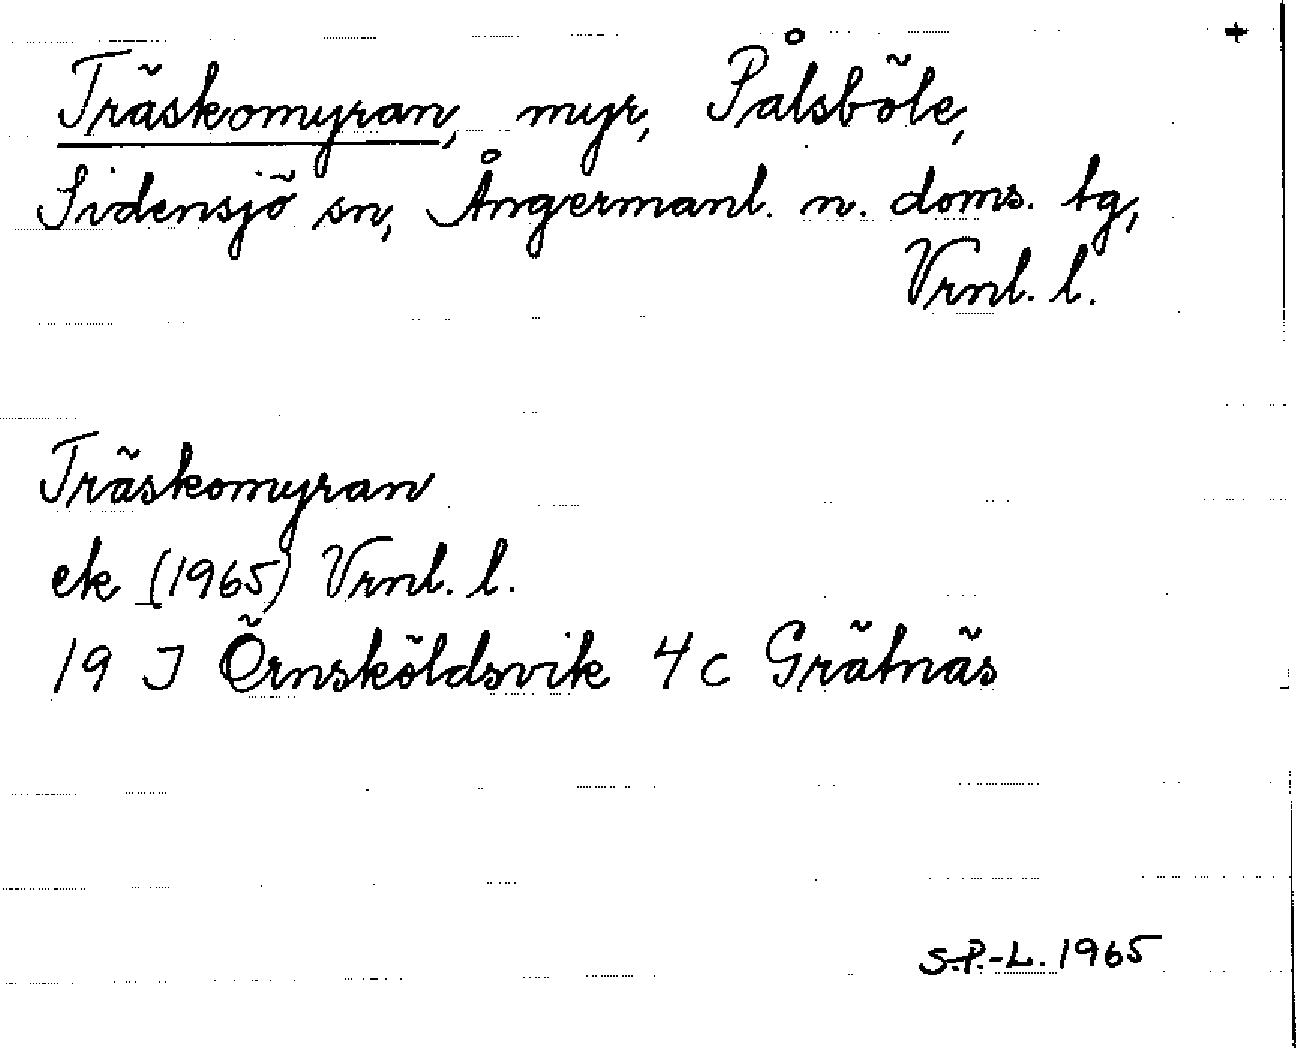 +
Träskomyran, myr, Pålsböle,
Sidensjö sn, Ångermanl. n. doms. tg,
Vrnl. l.
Träskomyran
ek (1965) Vrnl. l.
19 J Örnsköldsvik 4 c Grätnäs
S.P.-L. 1965